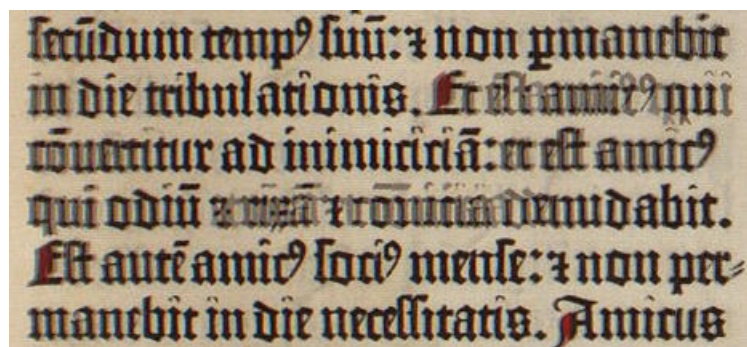 secūdum tempꝰ suū: ⁊ non ꝑmanebit
in die tribulationis. Et est amicꝰ qui
cōuertitur ad inimiciciā: et est amicꝰ
qui odiū ⁊ rixā ⁊ cōuicia denudabit.
Est autē amicꝰ sociꝰ mense: ⁊ non per-
manebit in die necessitatis. Amicus